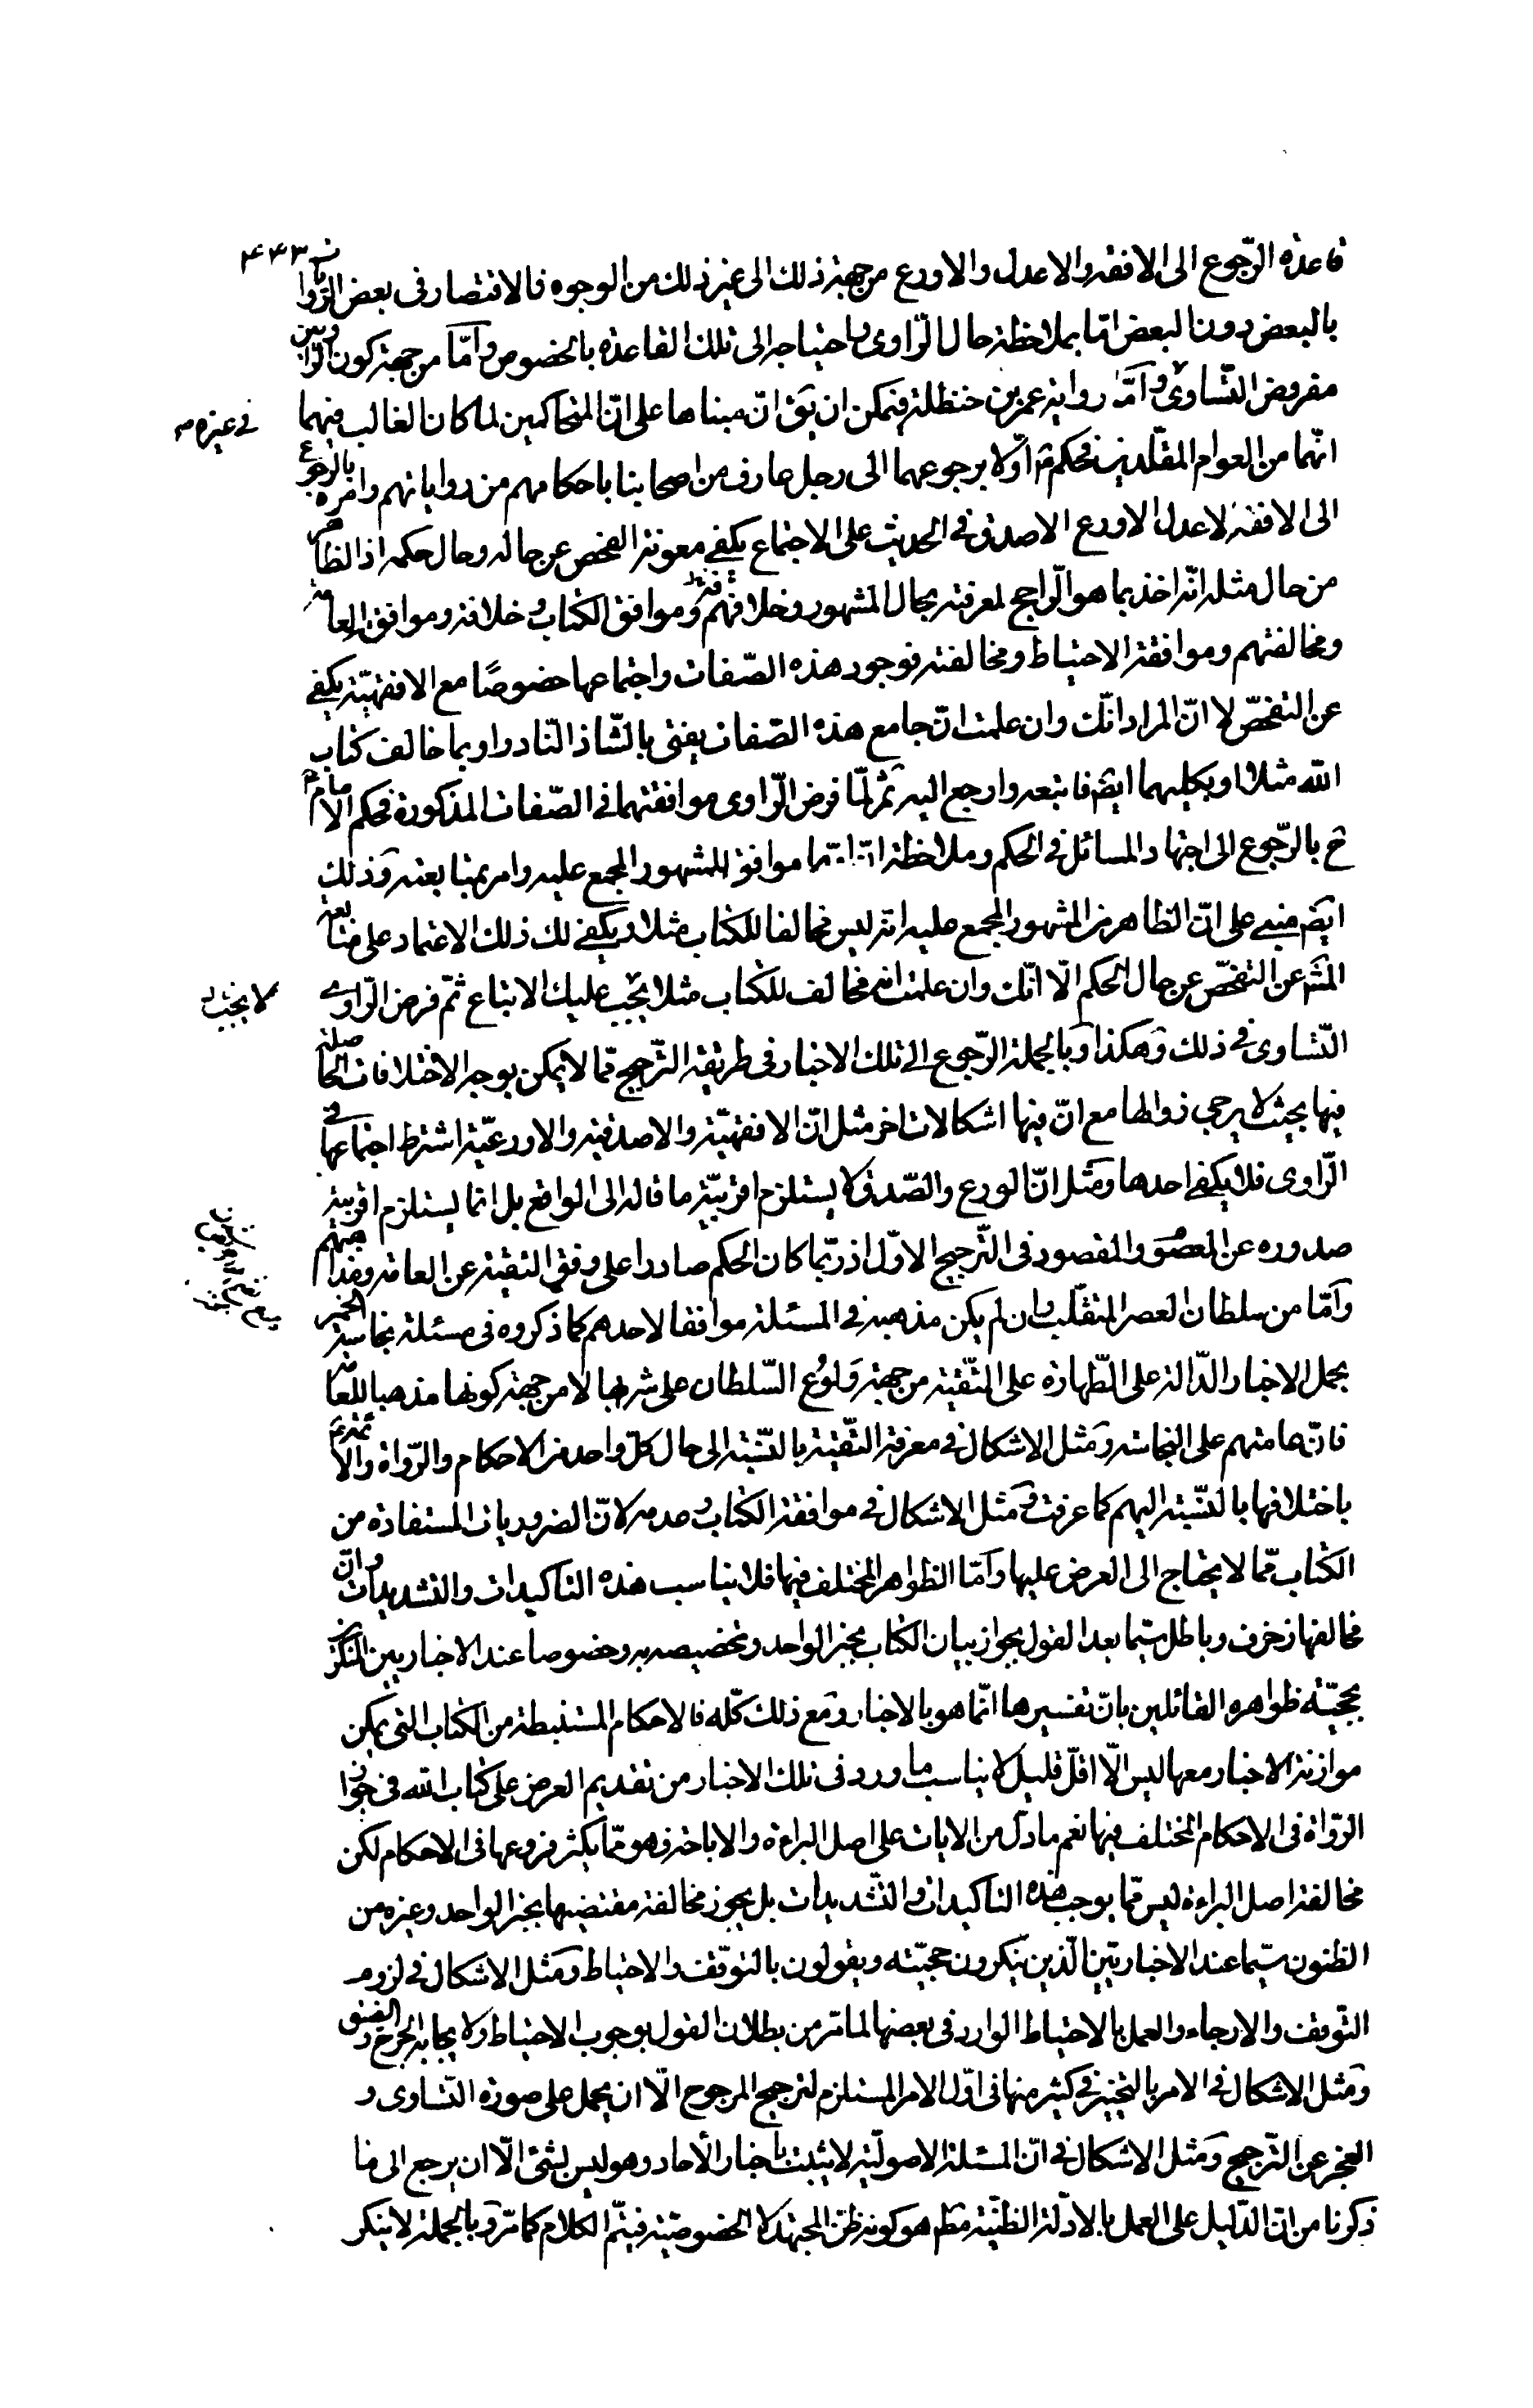 ۴۴۳
قاعدة الرّجوع الى الافقه والاعدل والاورع من جهة ذلك الى غير ذلك من الوجوه فالاقتصار فى بعض الرّوايا
بالبعض دون البعض امّا بملاحظة حال الرّاوى واحتياجه الى تلك القاعدة بالخصوص وامّا من جهة كون الرّاويين
مفروض التّساوى وامّا رواية عمر بن حنظلة فيمكن ان يق انّ مبناها على انّ المتحاكمين لما كان الغالب فيهما
فى غيره
انّهما من العوام المقلّدين فحكم ع اوّلا برجوعهما الى رجل عارف من اصحابنا باحكامهم من رواياتهم وامره بالرجوع
الى الافقه الاعدل الاورع الاصدق فى الحديث على الاجتماع يكفى معونة الفحص عن حاله وحال حكمه اذ الظاهر
من حال مثله انّه اخذ بما هو الرّاجح لمعرفته بحال المشهور وخلافهم وموافق الكتاب وخلافه وموافق العامة
ومخالفتهم وموافقة الاحتياط ومخالفته فوجود هذه الصّفات واجتماعها خصوصًا مع الافقهيّة يكفى
عن التفحّص لا انّ المراد انّك وان علمت انّ جامع هذه الصّفات يفتى بالشّاذ النّادر او بما خالف كتاب
الله مثلا او بكليهما ايضا فاتبعه وارجع اليه ثمّ لمّا فرض الرّاوى موافقتهما فى الصّفات المذكورة فحكم الامام
ح بالرّجوع الى اجتهاد المسائل فى الحكم وملاحظة انّ ايّهما موافق للمشهور المجمع عليه وامر بمتابعته وذلك
ايضا مبنى على انّ الظاهر من المشهور المجمع عليه انه ليس مخالفا للكتاب مثلا ويكفى لك ذلك الاعتماد على متابعة
المش عن التفحّص عن حال الحكم الّا انّك وان علمت انه مخالف للكتاب مثلا يجب عليك الاتباع ثمّ فرض الرّاوى
لا يجب
التّساوى فى ذلك وهكذا وبالجملة الرّجوع الى تلك الاخبار فى طريقة التّرجيح ممّا لا يمكن بوجه الاختلافات الحاصلة
فيها بحيث لا يرجى زوالها مع انّ فيها اشكالات اخر مثل انّ الافقهيّة والاصدقية والاورعيّة اشترط اجتماعها فى
الرّاوى فلا يكفى احدها ومثل انّ الورع والصّدق لا يستلزم اقربيّة ما قاله الى الواقع بل انما يستلزم اقربية
صدوره عن المعصوم والمقصود فى التّرجيح الاوّل اذ ربّما كان الحكم صادرا على وفق التقيّة عن العامة ومذاهبهم
وامّا من سلطان العصر المتقلّب وان لم يكن مذهبه فى المسئلة موافقا لاحدهم كما ذكروه فى مسئلة نجاسة الخمر
بحمل الاخبار الدّالة على الطّهارة على التّقيّة من جهة ولوع السّلطان على شربها لا من جهة كونها مذهبا للعامة
فانّ عامتهم على النجاسة ومثل الاشكال فى معرفة التّقيّة بالنّسبة الى حال كلّ واحد من الاحكام والرّواة والائمّة
باختلافها بالنّسبة اليهم كما عرفت ومثل الاشكال فى موافقة الكتاب وعدمه لانّ الضروريات المستفادة من
الكتاب ممّا لا يحتاج الى العرض عليها وامّا الظواهر المختلف فيها فلا يناسب هذه التاكيدات والتشديدات وانّ
مخالفها زخرف وباطل سيّما بعد القول بجواز بيان الكتاب بخبر الواحد وتخصيصه به وخصوصا عند الاخباريين المنكرين
بحجيّة ظواهره القائلين بانّ تفسيرها انّما هو بالاخبار ومع ذلك كلّه فالاحكام المستنبطة من الكتاب التى يمكن
موازنة الاخبار معها ليس الّا اقلّ قليل لا يناسب ما ورد فى تلك الاخبار من تقديم العرض على كتاب الله فى جواب
الرّواة فى الاحكام المختلف فيها نعم ما دلّ من الايات على اصل البراءة والاباحة فهو ممّا يكثر فروعها فى الاحكام لكن
مخالفة اصل البراءة ليس ممّا يوجب هذه التاكيدات والتّشديدات بل يجوز مخالفة مقتضيها بخبر الواحد وغيره من
الظنون سيّما عند الاخباريّين الّذين ينكرون حجيّته ويقولون بالتوقّف والاحتياط ومثل الاشكال فى لزوم
التّوقف والارجاء والعمل بالاحتياط الوارد فى بعضها لما مرّ من بطلان القول بوجوب الاحتياط ولايجابه الحرج والضيق
ومثل الاشكال فى الامر بالتخيير فى كثير منها فى اوّل الامر المستلزم لترجيح المرجوح الّا ان يحمل على صورة التّساوى و
العجز عن التّرجيح ومثل الاشكال فى انّ المسئلة الاصوليّة لا يثبت باخبار الآحاد وهو ليس بشئ الّا ان يرجع الى ما
ذكرنا من انّ الدّليل على العمل بالادلّة الظنّية مط هو كونه ظنّ المجتهد لا الخصوصيّة فيتمّ الكلام كما مرّ وبالجملة لا ينكر